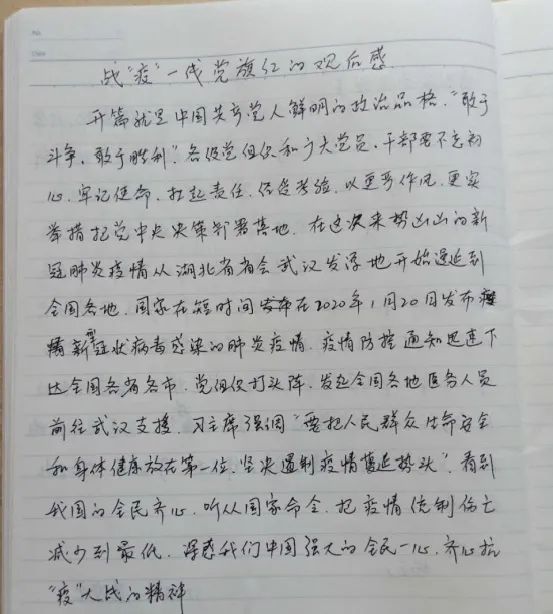 No.
Date
战"疫"一线党旗红的观后感
开篇就是中国共产党人鲜明的政治品格,"敢于
斗争,敢于胜利"。各级党组织和广大党员、干部要不忘初
心、牢记使命、扛起责任、经受考验,以更严作风、更实
举措把党中央决策部署落地。在这次来势凶凶的新
冠肺炎疫情从湖北省省会武汉发源地开始漫延到
全国各地,国家在短时间发布在2020年1月20日发布
新型冠状病毒感染的肺炎疫情,疫情防控通知迅速下
达全国各省各市,党组织打头阵,发起全国各地医务人员
前往武汉支援,习主席强调"要把人民群众生命安全
和身体健康放在第一位,坚决遏制疫情蔓延势头"。看到
我国的全民齐心,听从国家命令,把疫情控制伤亡
减少到最低,深感我们中国强大的全民一心,齐心抗
"疫"大战的精神